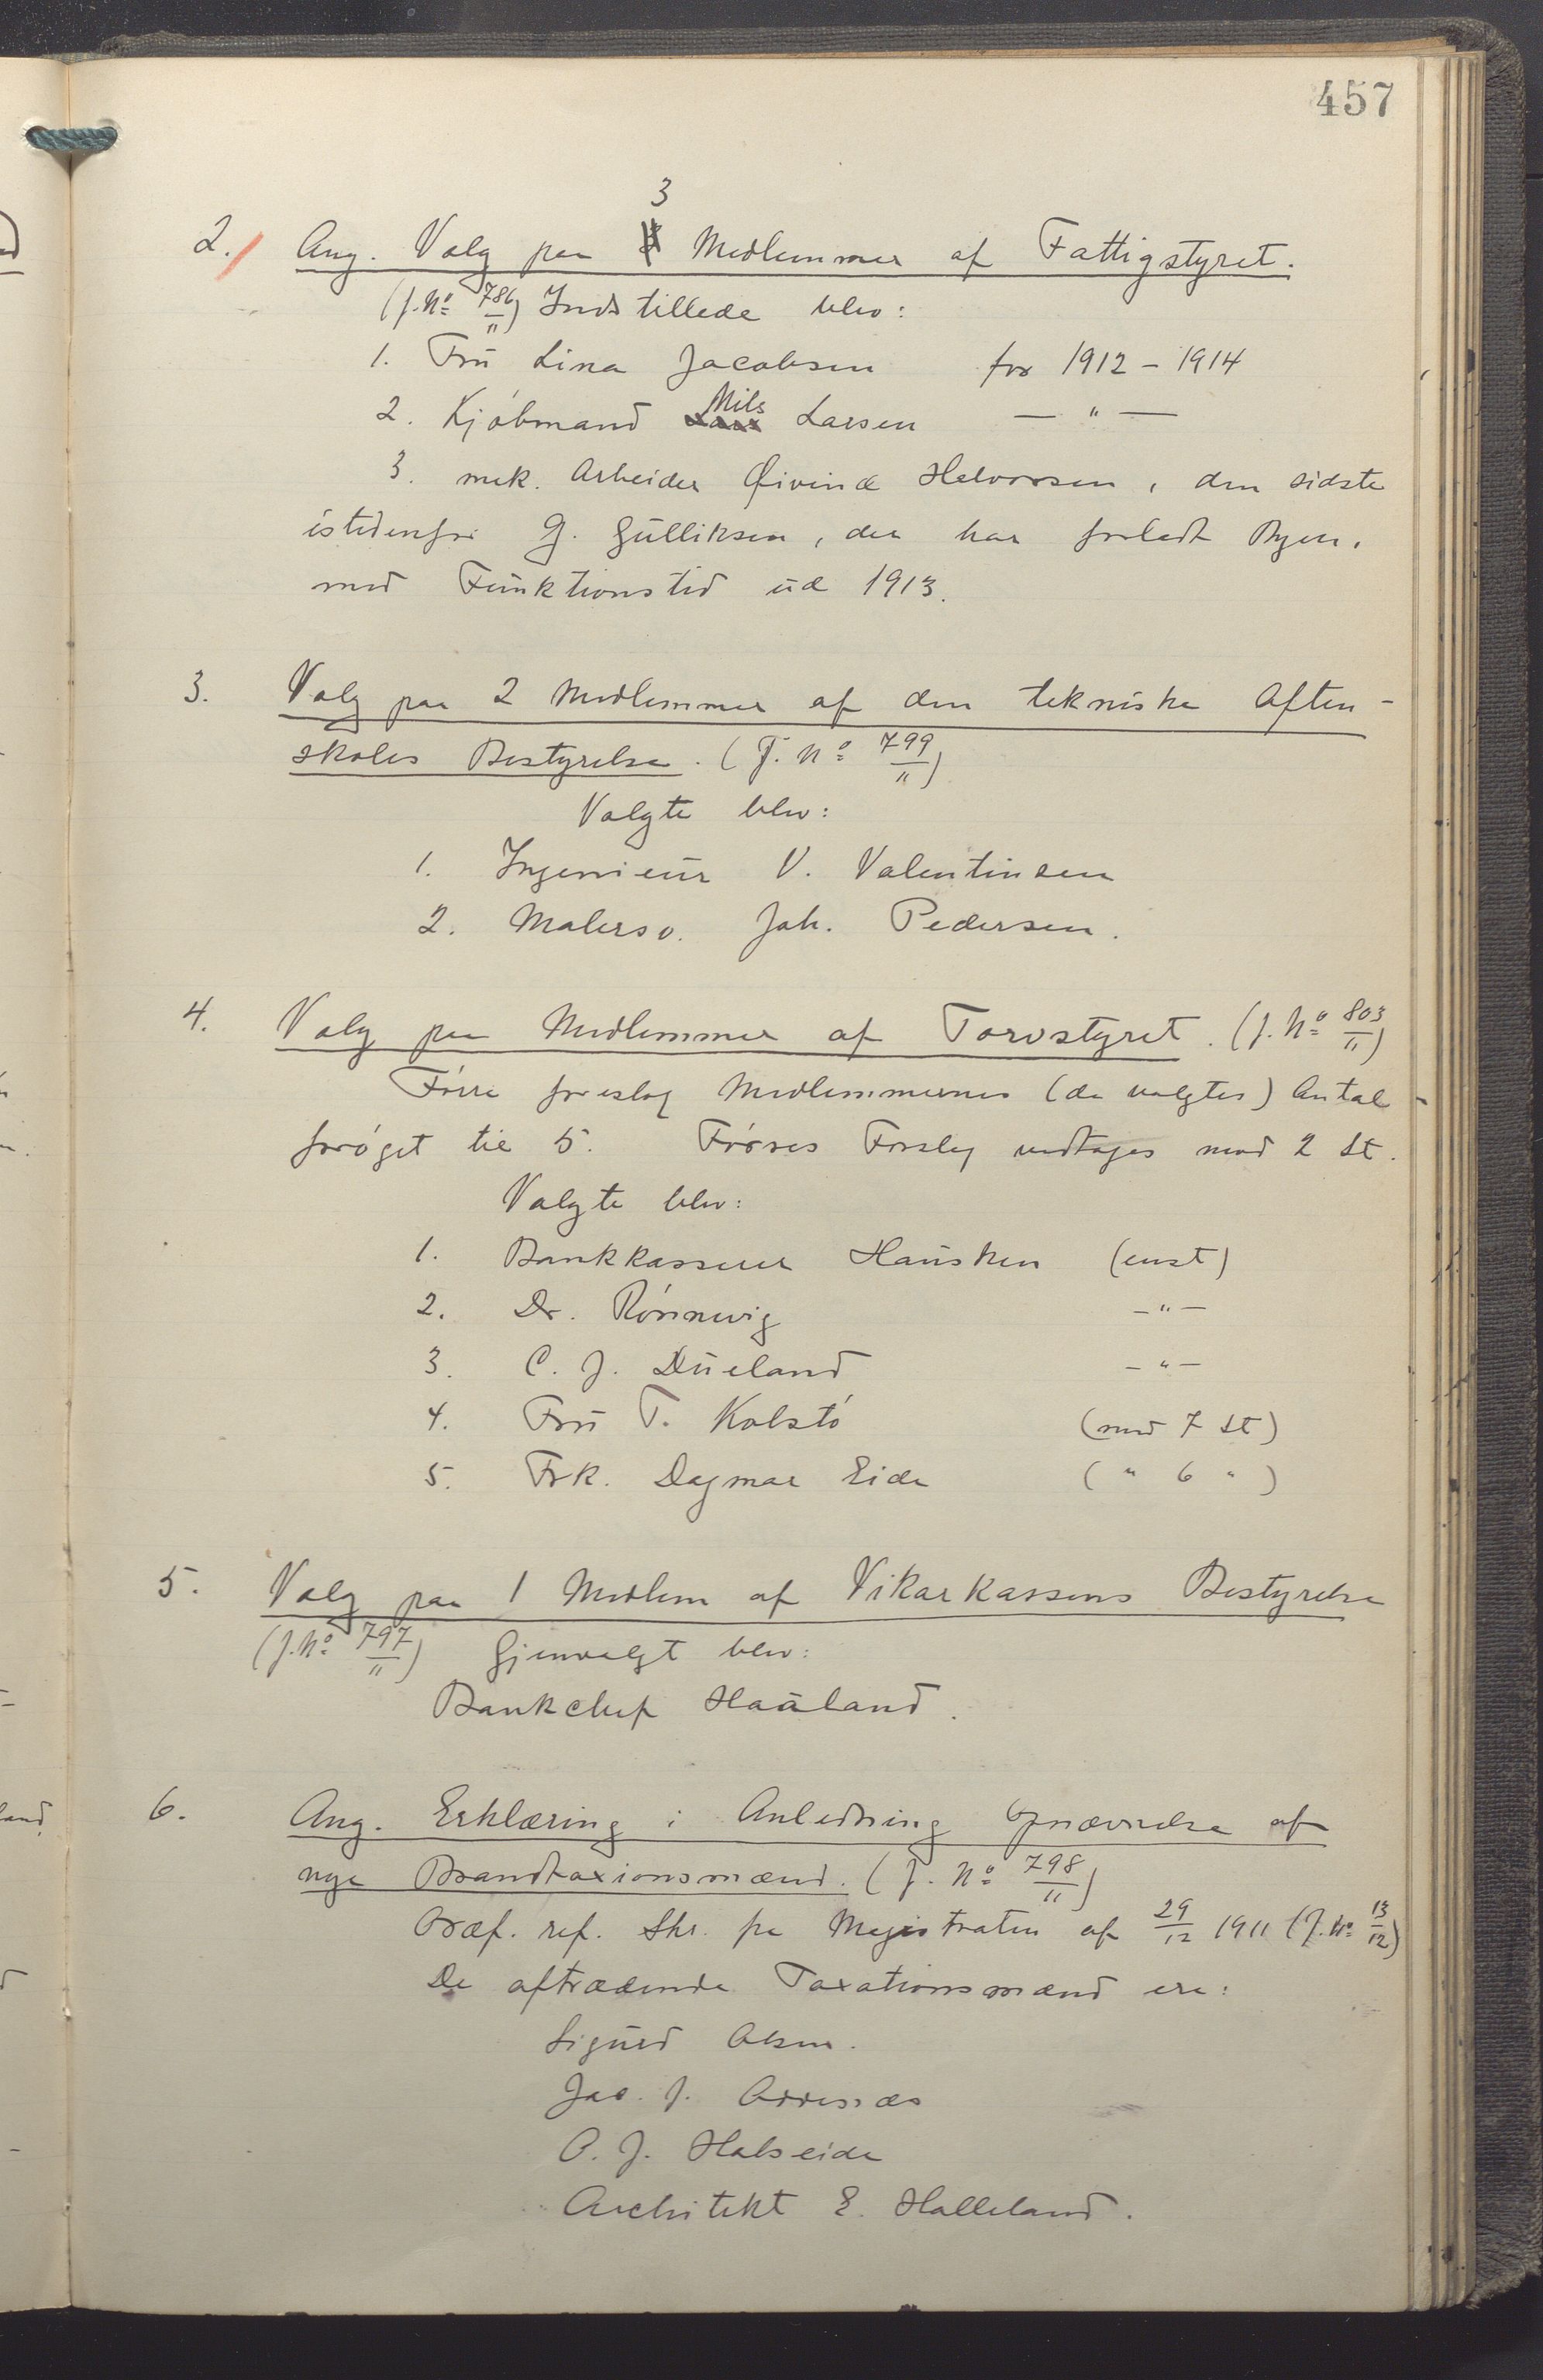 457
2. Ang. Valg paa 3 Medlemmer af Fattigstyret.
(J.No 786/11) Indstillede blev:
1. Fru Lina Jacobsen for 1912 - 1914
2. Kjøbmand Nils Larsen — " —
3. mek. Arbeider Øivind Halvorsen, den sidste
istedenfor G. Gulliksen, der har forladt Byen,
med Funktionstid ud 1913.
3. Valg paa 2 Medlemmer af den tekniske Aften-
skoles Bestyrelse. (J. No 799/11)
Valgte blev:
1. Ingenieur V. Valentinsen
2. Malersv. Joh. Pedersen.
4. Valg paa Medlemmer af Torvstyret. (J. No 803/11)
Førre foreslog Medlemmernes (de valgtes) Antal
forøget til 5. Førres Forslag vedtages mod 2 St.
Valgte blev:
1. Bankkasserer Hausken (enst)
2. Dr. Rönnevig - " -
3. C. J. Dueland - " -
4. Fru T. Kolstö (med 7 St)
5. Frk. Dagmar Eide ( " 6 " )
5. Valg paa 1 Medlem af Vikarkassens Bestyrelse
(J.No 797/11) Gjenvalgt blev:
Bankchef Haaland.
6. Ang. Erklæring i Anledning Opnævnelse af
nye Brandtaxionsmænd. (J. No 798/11)
Ordf. ref. Skr. fra Magistraten af 29/12 1911 (J.No 13/12)
De aftrædende Taxationsmænd ere:
Sigurd Olsen.
Jac. J.
O. J. Halseide
Architekt E. Halleland.